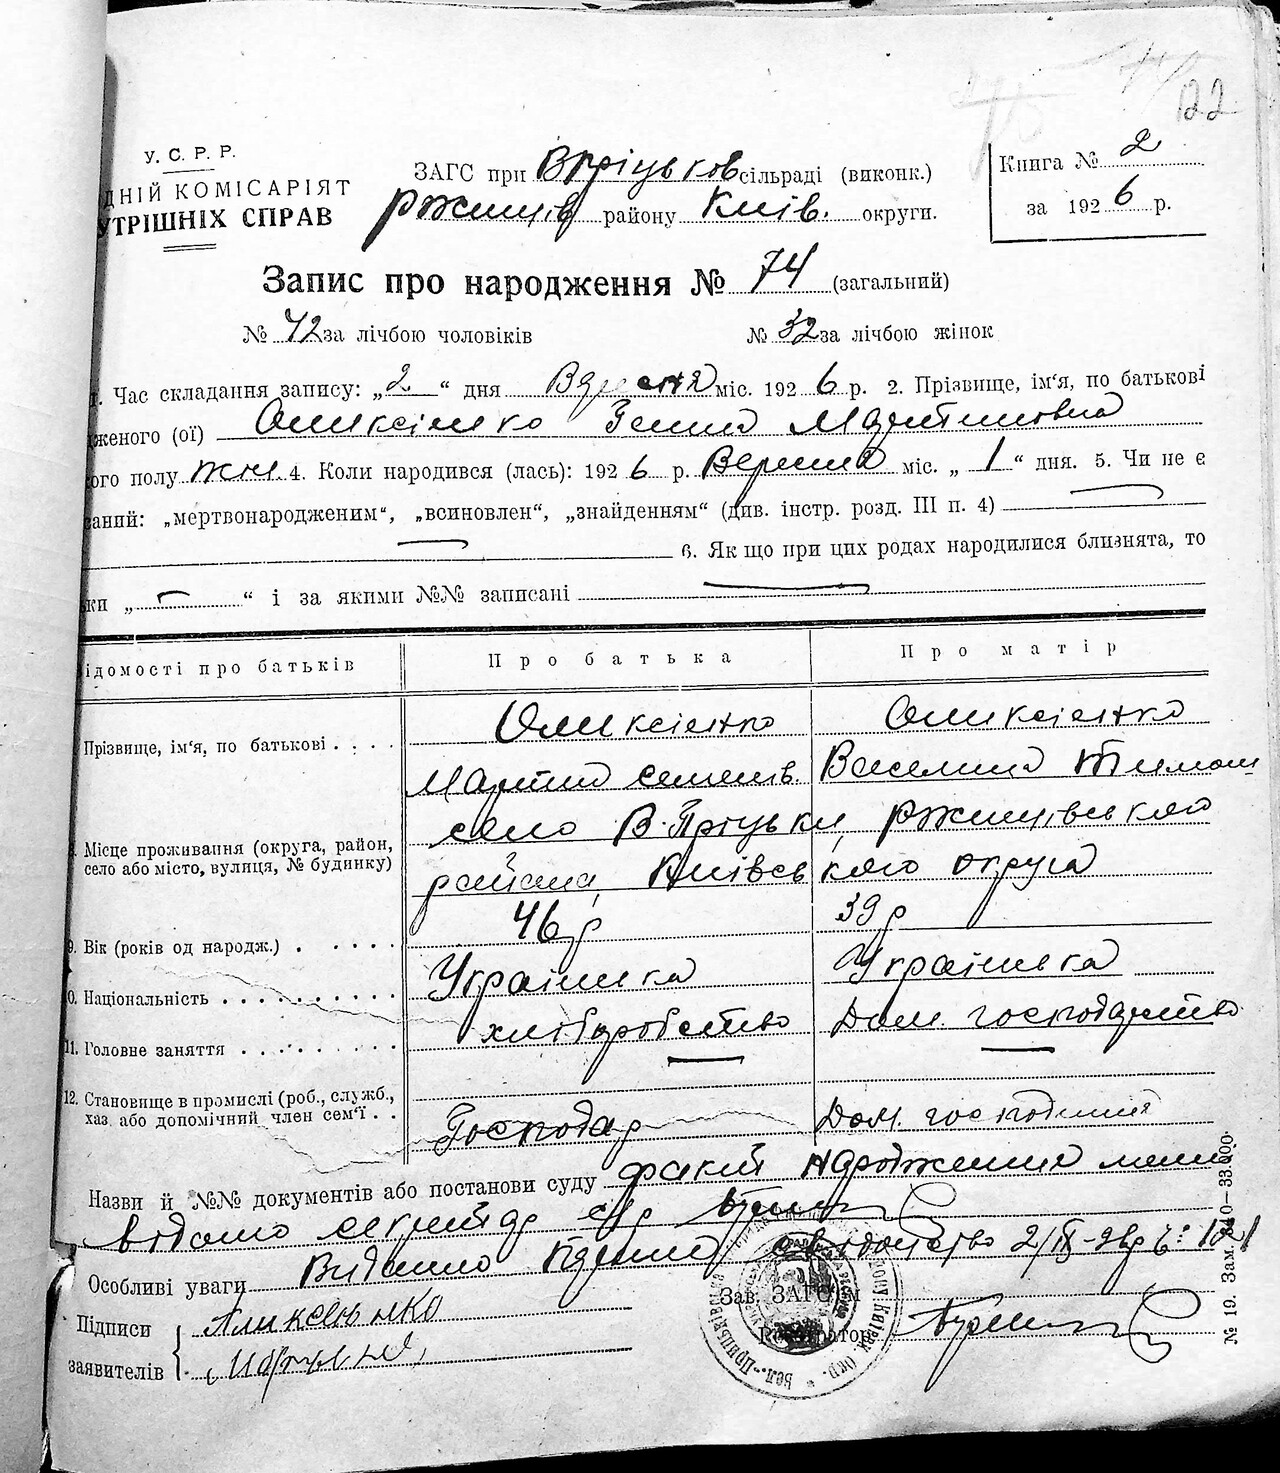 122
У. С. Р. Р.
ДНІЙ КОМІСАРІЯТ
УТРІШНІХ СПРАВ
ЗАГС при Впріцьков сільраді (виконк.)
Ржищів району Київ. округи.
Книга № 2
за 1926 р.
Запис про народження № 74 (загальний)
№ 42 за лічбою чоловіків № 32 за лічбою жінок
1. Час складання запису: „2“ дня Вересня міс. 1926 р. 2. Прізвище, ім'я, по батькові
женого (ої) Оликсієнко Ганна Мартинівна
ого полу жін. 4. Коли народився (лась): 1926 р. Вересня міс. „1“ дня. 5. Чи не є
саний: „мертвонародженим“, „всиновлен“, „знайденням“ (див. інстр. розд. III п. 4)
6. Як що при цих родах народилися близнята, то
ки „—“ і за якими №№ записані
ідомості про батьків
Про батька
Про матір
Прізвище, ім'я, по батькові
Оликсієнко
Мартин Семенів.
Оликсієнко
Василина Тимош
Місце проживання (округа, район,
село або місто, вулиця, № будинку)
село В-Пріцьки, Ржищівського
района, Київського округа
9. Вік (років од народж.) 46 р 39 р
10. Національність Українка Українка
11. Головне заняття хліборобство Дом. господарство
12. Становище в промислі (роб., служб.,
хаз. або допомічний член сем'ї
Господар Дом. господиня
Назви й №№ документів або постанови суду факт народження мені
відомо секретар с/р
Особливі уваги Видано свідоцтво 2/IX-26р № 121
Підписи
заявителів
Аликсеєнко
Мартин
Зав. ЗАГС'ом
Реєстратор
№ 19. Зам.
33.000.